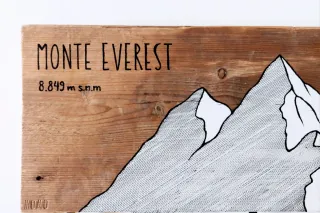 MONTE EVEREST
8.849 m s.n.m